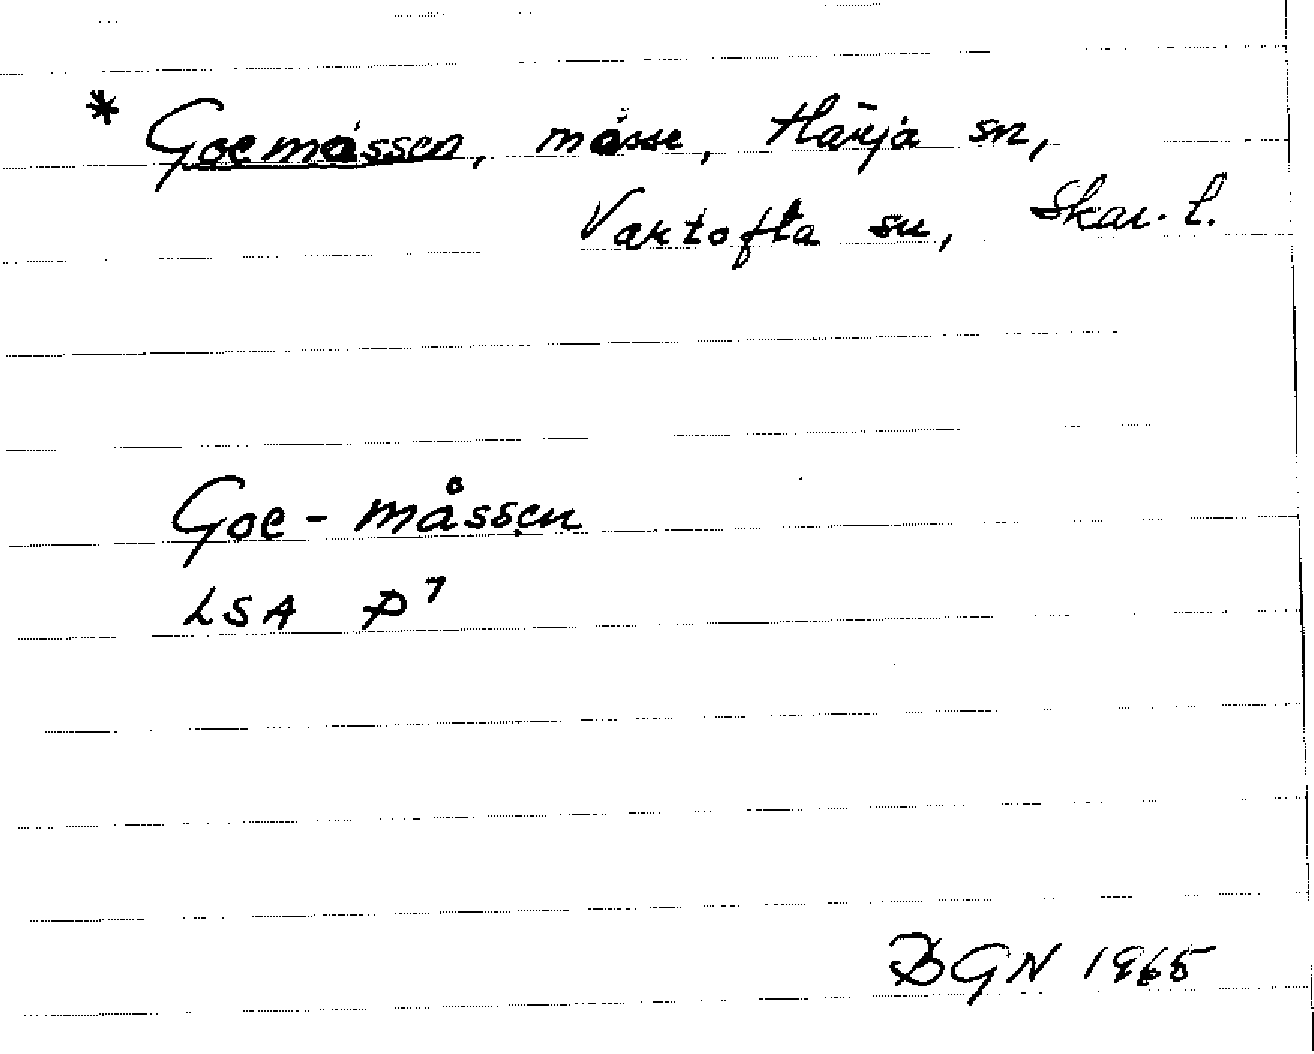 * Goemåssen, måsse, Härja sn,
Vartofta sn, Skar. l.
Goe - måssen
LSA P7
BGN 1965